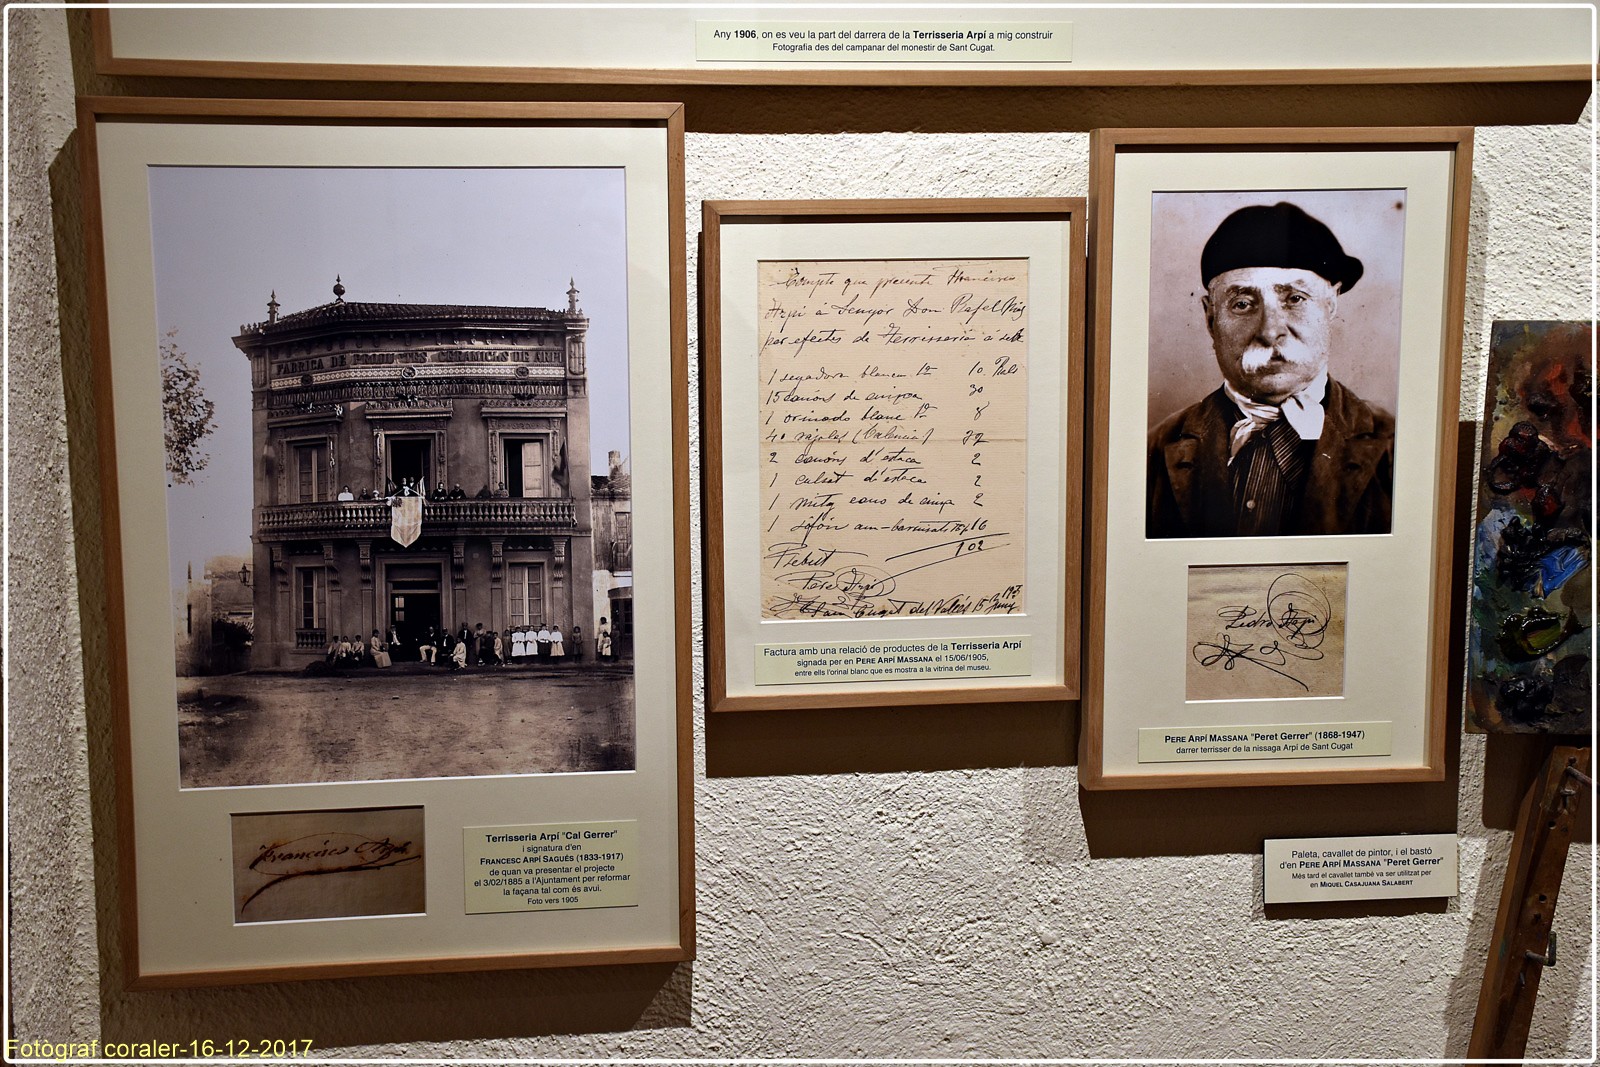 Any 1906, on es veu la part del darrera de la Terrisseria Arpí a mig construir
Fotografia des del campanar del monestir de Sant Cugat.
FABRICA DE PRODUCTES CERAMICS DE ARPI
Francisco Arpí
Terrisseria Arpí "Cal Gerrer"
i signatura d'en
FRANCESC ARPÍ SAGUÉS (1833-1917)
de quan va presentar el projecte
el 3/02/1885 a l'Ajuntament per reformar
la façana tal com és avui.
Foto vers 1905
Compte que presenta Francisco
Arpi a Senyor Don Rafel
per efectes de Terrisseria á
1 blanca 1ª 10
15 canons de 30
1 orinado blanc 1ª 8
40 rajoles (Valencia) 32
2 canóns d'estaca 2
1 d'estaca 2
1 mitg cano de 2
1 sifón am 16
102
Rebut
Pere Arpí
San Cugat del Vallés 15 Juny
Factura amb una relació de productes de la Terrisseria Arpí
signada per en PERE ARPÍ MASSANA el 15/06/1905,
entre ells l'orinal blanc que es mostra a la vitrina del museu.
Pedro Arpí
PERE ARPÍ MASSANA "Peret Gerrer" (1868-1947)
darrer terrisser de la nissaga Arpí de Sant Cugat
Paleta, cavallet de pintor, i el bastó
d'en PERE ARPÍ MASSANA "Peret Gerrer"
Més tard el cavallet també va ser utilitzat per
en MIQUEL CASAJUANA SALABERT
Fotògraf coraler-16-12-2017